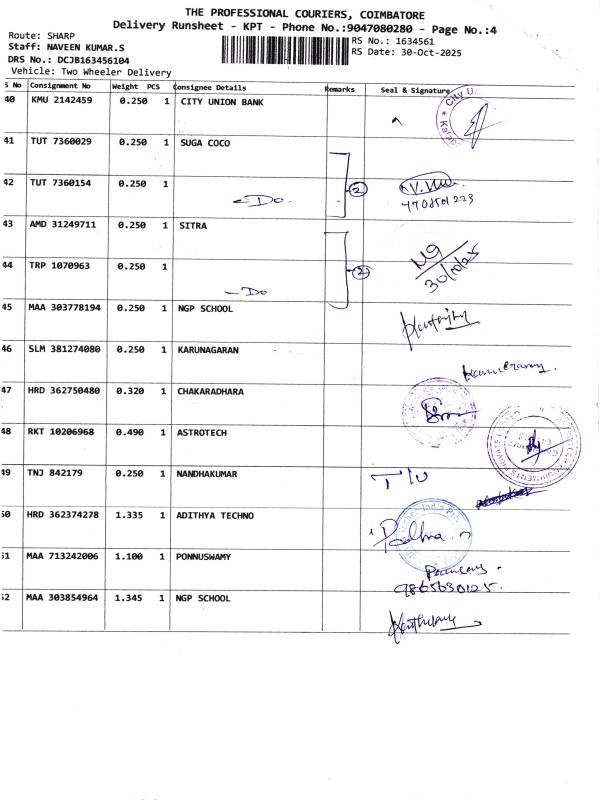 THE PROFESSIONAL COURIERS, COIMBATORE
Delivery Runsheet - KPT - Phone No.:9047080280 - Page No.:4
Route: SHARP
Staff: NAVEEN KUMAR.S
DRS No.: DCJB163456104
Vehicle: Two Wheeler Delivery
RS No.: 1634561
RS Date: 30-Oct-2025
S No Consignment No Weight PCS Consignee Details Remarks Seal & Signature
40 KMU 2142459 0.250 1 CITY UNION BANK
41 TUT 7360029 0.250 1 SUGA COCO
42 TUT 7360154 0.250 1
- Do - 2
43 AMD 31249711 0.250 1 SITRA
30/10/25
44 TRP 1070963 0.250 1
- Do 2
45 MAA 303778194 0.250 1 NGP SCHOOL
46 SLM 381274080 0.250 1 KARUNAGARAN
47 HRD 362750480 0.320 1 CHAKARADHARA
48 RKT 10206968 0.490 1 ASTROTECH
49 TNJ 842179 0.250 1 NANDHAKUMAR
50 HRD 362374278 1.335 1 ADITHYA TECHNO
Padma
51 MAA 713242006 1.100 1 PONNUSWAMY
9865630125
52 MAA 303854964 1.345 1 NGP SCHOOL